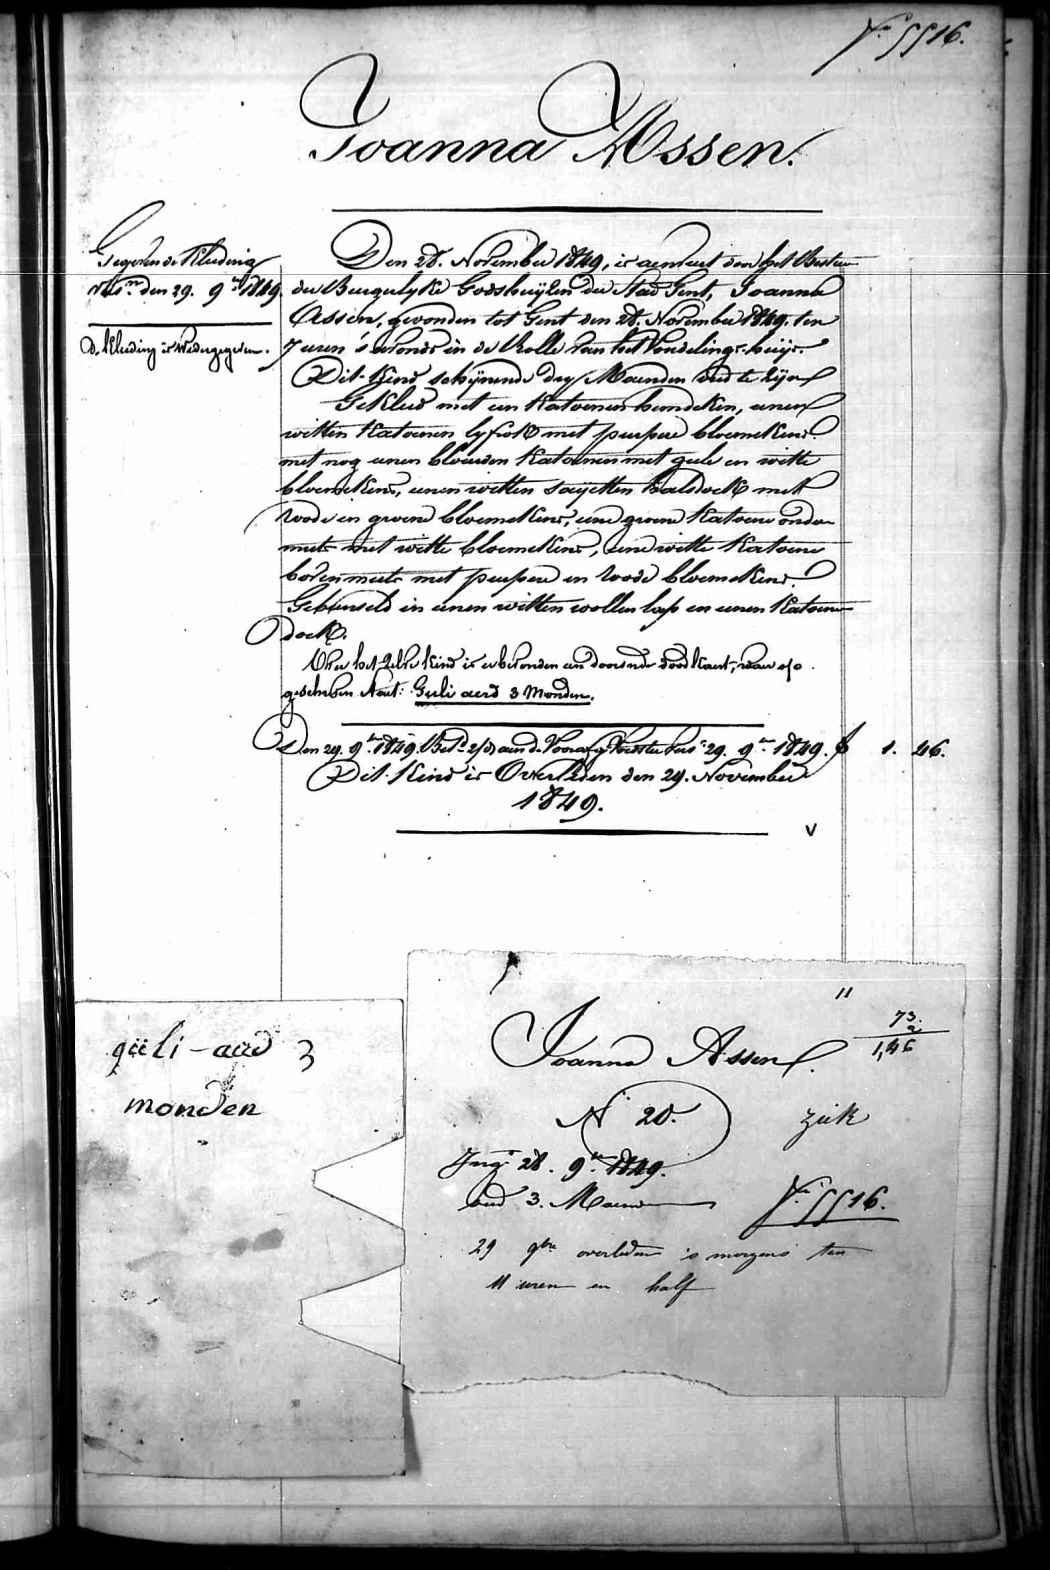 N.° 5516.
Joanna Assen.
Gegeven de Kleeding
den 29. 9.bre 1849.
De kleeding is wedergegeven.
Den 28. November 1849, is aenveerd door het Bestuer
der Burgerlyke Godshuijzen der Stad Gent, Joanna
Assen, gevonden tot Gent den 28. November 1849. ten
7 uren 's avonds in de Rolle van het Vondelings-huijs.
Dit Kind schijnende dry Maenden oud te zijn
Gekleed met een Katoenen hemdeken, eenen
witten Katoenen lyfrok met purpere bloemekens
met nog eenen blauwen Katoenen met geele en witte
bloemekens, eenen witten sayetten halsdoek met
roode en groene bloemekens, eene groene Katoene onder
muts met witte bloemekens, eene witte Katoene
bovenmuts met purpere en roode bloemekens.
Gebunseld in eenen witten wollen lap en eenen Katoenen
doek.
Over het zelve kind is er bevonden een doorsnede kaert, waer op
geschreven staet: Guli aerd 3 Monden.
Den 29. 9.bre 1849. Bet.d 2/d aen de Voorzorg 29. 9.bre 1849. f 1. 46.
Dit Kind is Overleden den 29. November
1849.
V
güli - aerd 3
monden
11
73.
2
1,46
Joanna Assen.
N.° 20.
ziek
Ing.n 28. 9.bre 1849.
oud 3. Maenden
N.° 5516.
29 9bre overleden 's morgens ten
11 uren en half